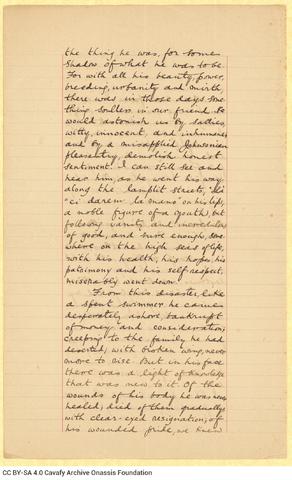 the thing he was, for some
shadow of what he was to be.
For with all his beauty, power,
breeding, urbanity and mirth,
there was in those days some
thing soulless in our friend. He
would astonish us by sallies,
witty, innocent, and inhumane;
and by a misapplied Johnsonian
pleasantry, demolish honest
sentiment. I can still see and
hear him, as he went his way
along the lamplit streets, "Là
"ci darem la mano" on his lips,
a noble figure of a youth, but
following vanity and incredulous
of good; and sure enough, some
where on the high seas of life,
with his health, his hopes, his
patrimony and his self respect,
miserably went down.
From this disaster, like
a spent swimmer, he came
desperately ashore, bankrupt
of money and consideration;
creeping to the family he had
deserted; with broken wing, never
more to rise. But in his face
there was a light of knowledge
that was new to it. Of the
wounds of his body he was never
healed; died of them gradually,
with clear-eyed resignation; of
his wounded pride, we knew
CC BY-SA 4.0 Cavafy Archive Onassis Foundation